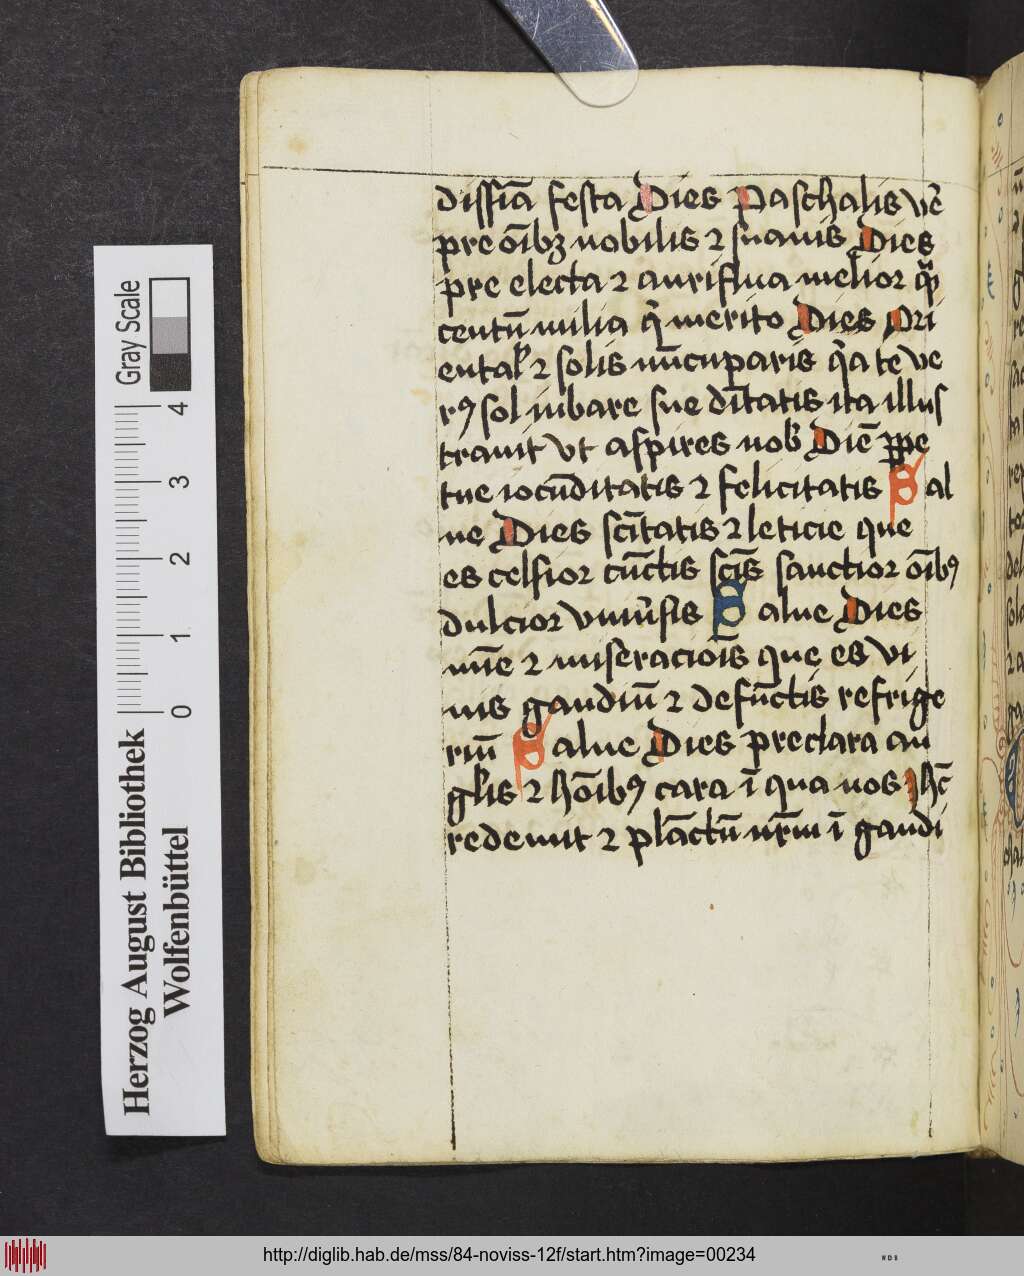 dissīa festa Dies Paschalis vē
pre oībꝫ nobilis ⁊ suauis Dies
pre electa ⁊ auriflua melior
centū milia merito Dies Ori
ental ⁊ solis nūcuparis q̄a te ve
rꝰ sol iubare sue dītatis ita illus
trauit vt aspires nob Diē ꝑpe
tue iocūditatis ⁊ felicitatis Sal
ue Dies scītatis ⁊ leticie que
es celsior cūctis scīs sanctior oībꝰ
dulcior vniūsis Salue Dies
⁊ miseracioīs que es vi
uis gaudiū ⁊ defūctis refrige
riū Salue Dies preclara an
glis ⁊ hoībꝰ cara ī qua nos Jhc̄
redemit ⁊ plāctū nr̄m ī gaudi
Gray Scale
4
3
2
1
0
Herzog August Bibliothek
Wolfenbüttel
http://diglib.hab.de/mss/84-noviss-12f/start.htm?image=00234